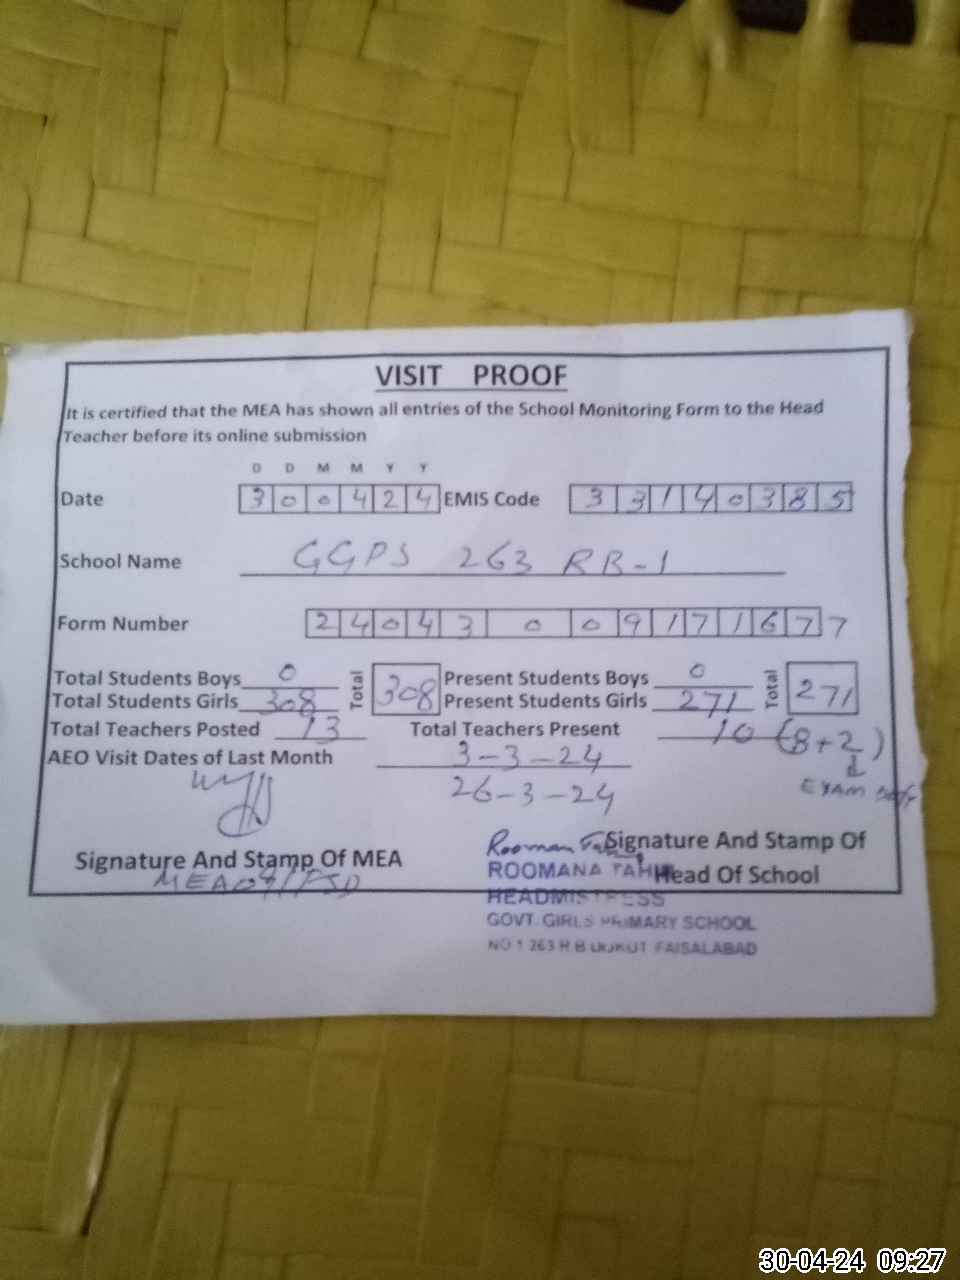 VISIT PROOF
It is certified that the MEA has shown all entries of the School Monitoring Form to the Head
Teacher before its online submission
D D M M Y Y
Date 300424 EMIS Code 33140385
School Name GGPS 263 RB-1
Form Number 24043 0 09171677
Total Students Boys 0 Total 308 Present Students Boys 0 Total 271
Total Students Girls 308 Present Students Girls 271
Total Teachers Posted 13 Total Teachers Present 10 (8+2)
AEO Visit Dates of Last Month 3-3-24
26-3-24
EXAM
Signature And Stamp Of MEA
Signature And Stamp Of
Head Of School
ROOMANA TAHIR
HEADMISTRESS
GOVT. GIRLS PRIMARY SCHOOL
NO 1 263 R B FAISALABAD
30-04-24 09:27